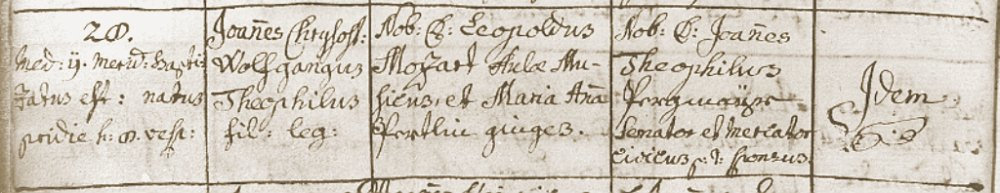 28.
med: 11. merid: baptizatus est: natus
pridie h: 8. vesp:
Joañes Chrysost:
Wolfgangus
Theophilus
fil: leg:
Nob: D: Leopoldus
Mozart Aulæ Mu-
sicus, et Maria Aña
Pertlin giuges.
Nob: D: Joañes
Theophilus
Pergmayr
Senator et Mercator
civicus p: t: sponsus.
Idem